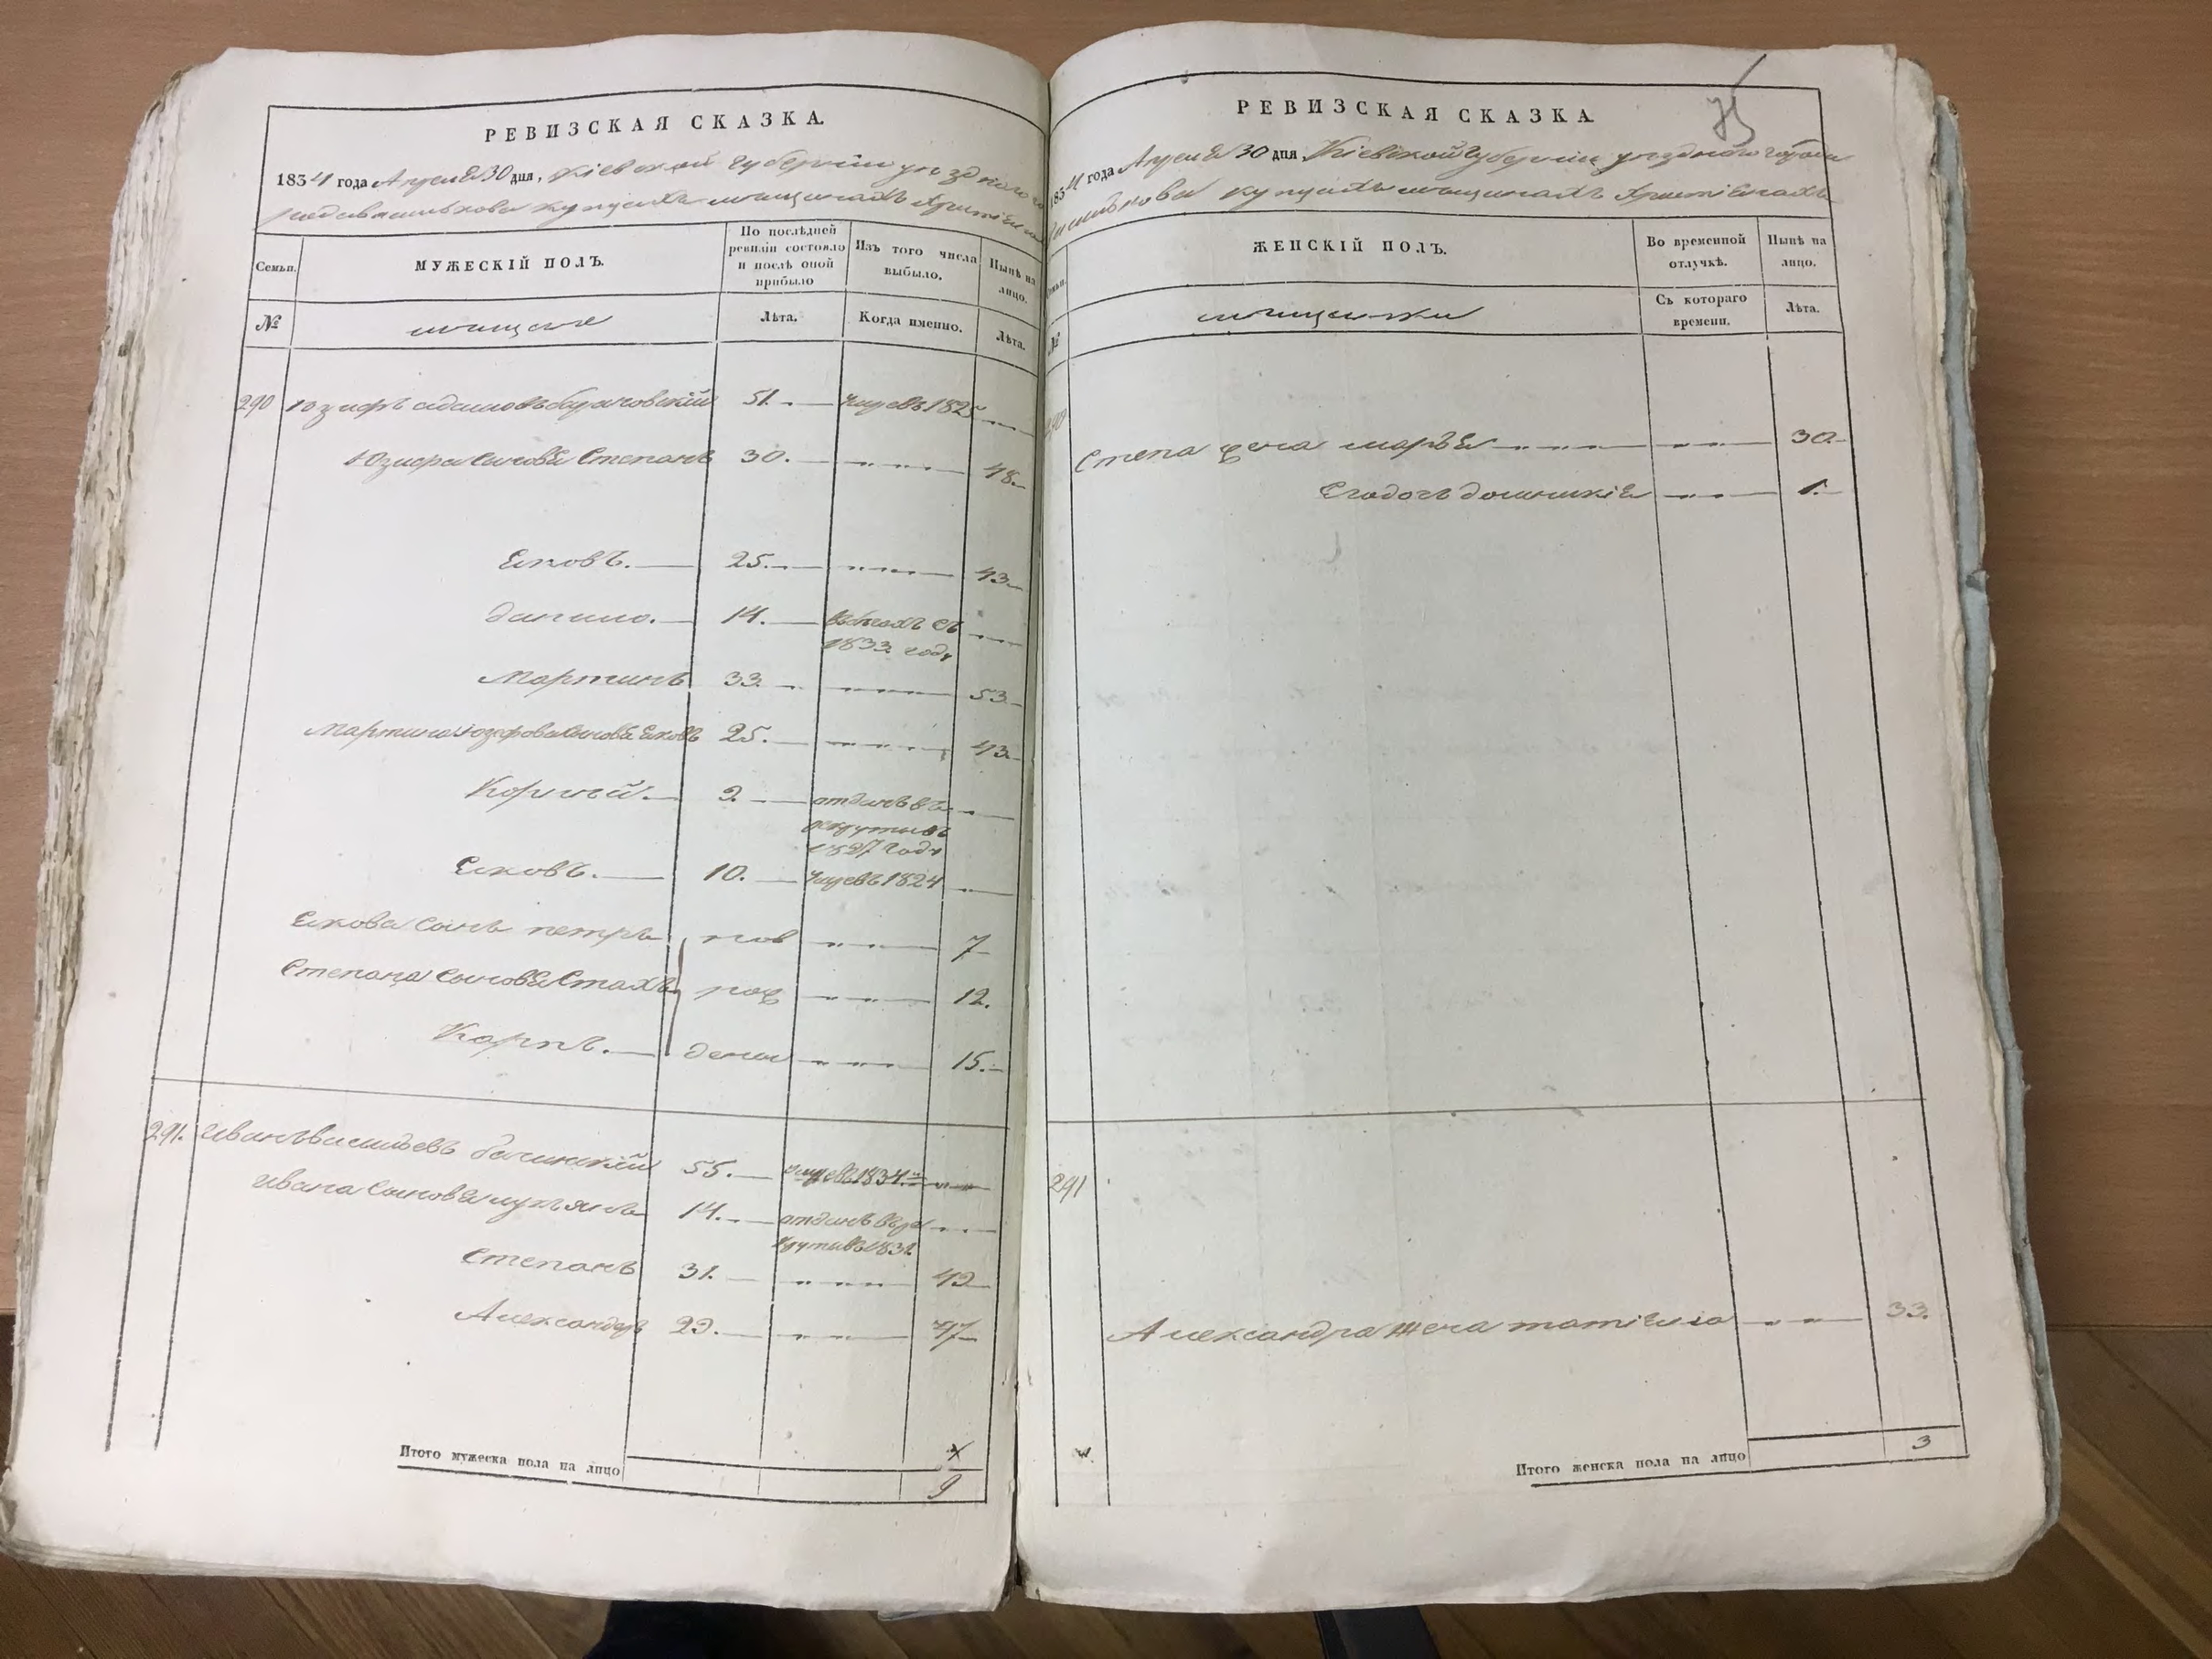 РЕВИЗСКАЯ СКАЗКА.
1834 года Апреля 30 дня, Кіевской губерніи уезднаго го
рода василькова купцахъ мещанахъ
Семьи.
МУЖЕСКІЙ ПОЛЪ.
По послѣдней ревизіи состояло и послѣ оной прибыло
Изъ того числа выбыло.
Нынѣ на лицо.
№
мещане
Лѣта.
Когда именно.
Лѣта.
290 Юзифъ адамовъ 51. умревъ 1825
Юзифа сыновья Степанъ 30. 48.
Яковъ. 25. 43.
данило. 14. въ бегахъ съ
1833 году
Мартинъ 33. 53.
Мартина Юзефова сыновья Яковъ 25. 43.
Корней. 2. отданъ въ
рекруты въ
1827 году
Яковъ. 10. умревъ 1824
Якова сынъ петръ нов 7
Степана сыновья Стахъ рож 12.
Карпъ. дены 15.
291. Иванъ васильевъ 55. умревъ 1834.
Ивана сыновья лукянъ 14. отданъ въ ре
крути въ 1832
Степанъ 31. 49
Александръ 29. 47
Итого мужеска пола на лицо
9
РЕВИЗСКАЯ СКАЗКА.
75
1834 года Апреля 30 дня, Кіевской губерніи уезднаго города
василькова купцахъ мещанахъ
ЖЕНСКІЙ ПОЛЪ.
Во временной отлучкѣ.
Нынѣ на лицо.
№
мещанки
Съ котораго времени.
Лѣта.
290
Степа жена марья 30.
Его дочь доминикія 1.
291
Александра жена 33.
Итого женска пола на лицо 3